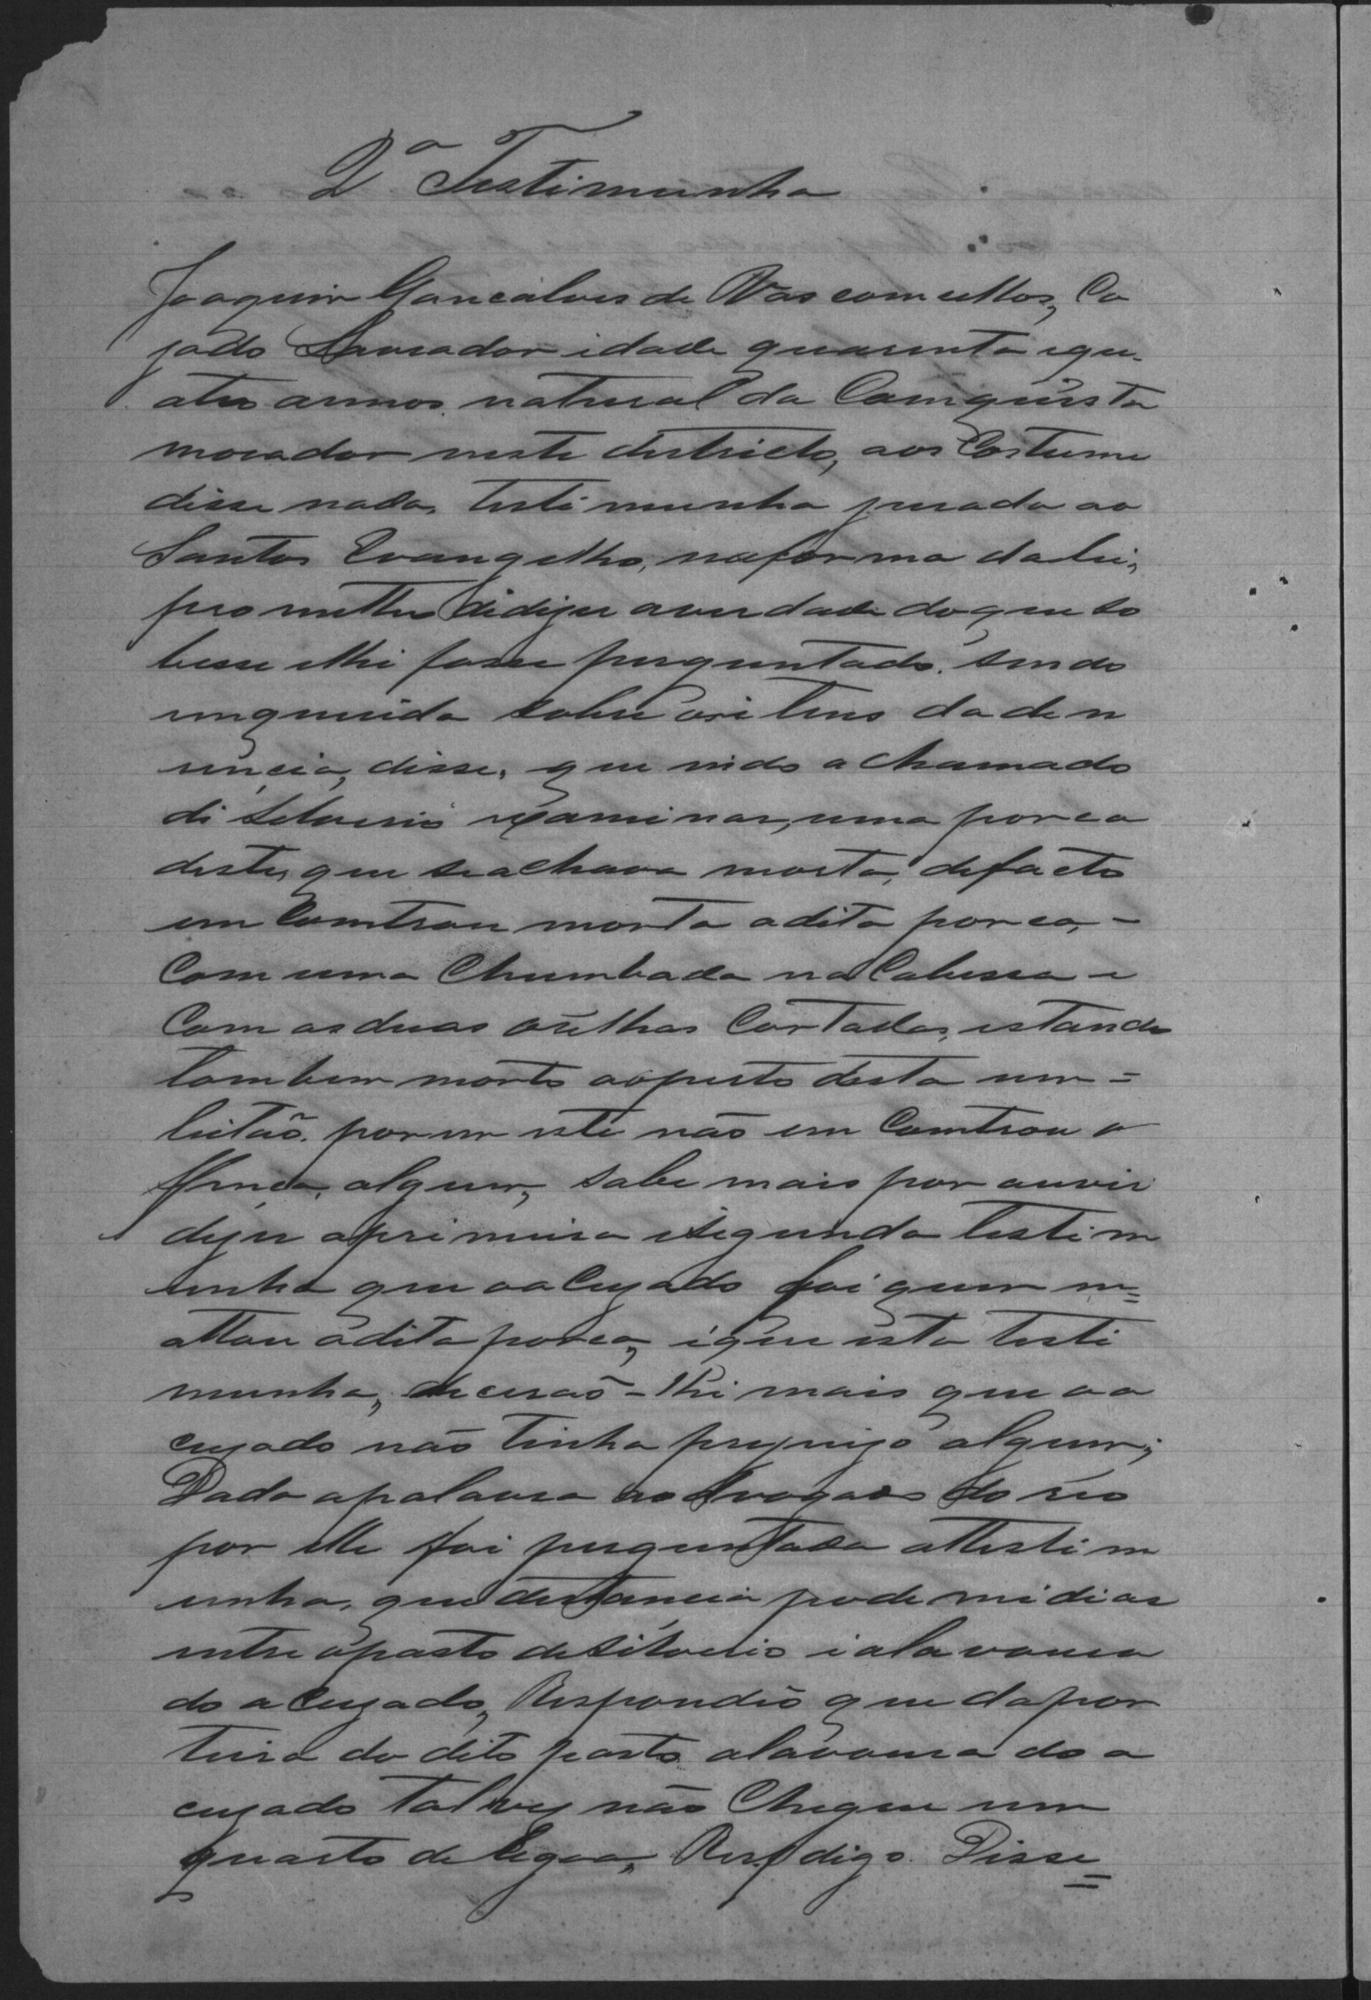 2ª Testimunha
Joaquim Goncalves de Vascomcellos, Ca
zado Lavrador idade quarenta equ-
atro annos natural da Comquista
morador neste destricto, aos Costume
disse nada, testimunha jurada ao
Santos Evangelho, naforma dalei,
prometteu dedizer averdade doque so
besse elhi fosse perguntado. Sendo
inquirida sobre ositens daden
uncia, disse, que indo a chamado
di Silverio examinar, uma porca
deste, que seachava morta, defacto
em Comtrou morta adita porca, -
Com uma Chumbada na Cabessa e
Com asduas orelhas Cortadas, estando
tambem morto aoperto desta um =
leitão. porem este não em Comtrou o
ffinça, algum, Sabe mais por ouvir
dizer aprimeira eSegunda testim
unha que oaCuzado foi quem m=
attou adita porca, eque esta testi
munha, diceraõ-lhi mais que oa
cuzado não tinha prejuizo algum;
Dada apalavra aoadvogado do réo
por elle foi perguntada attestim
unha, que destancia pode midiar
entre opasto deSilverio ialavoura
do aCuzado, Respondeo que dapor
teira do dito pasto alavoura do a
cuzado talvez não Chegue um
quarto de legoa, Resp digo. Disse=